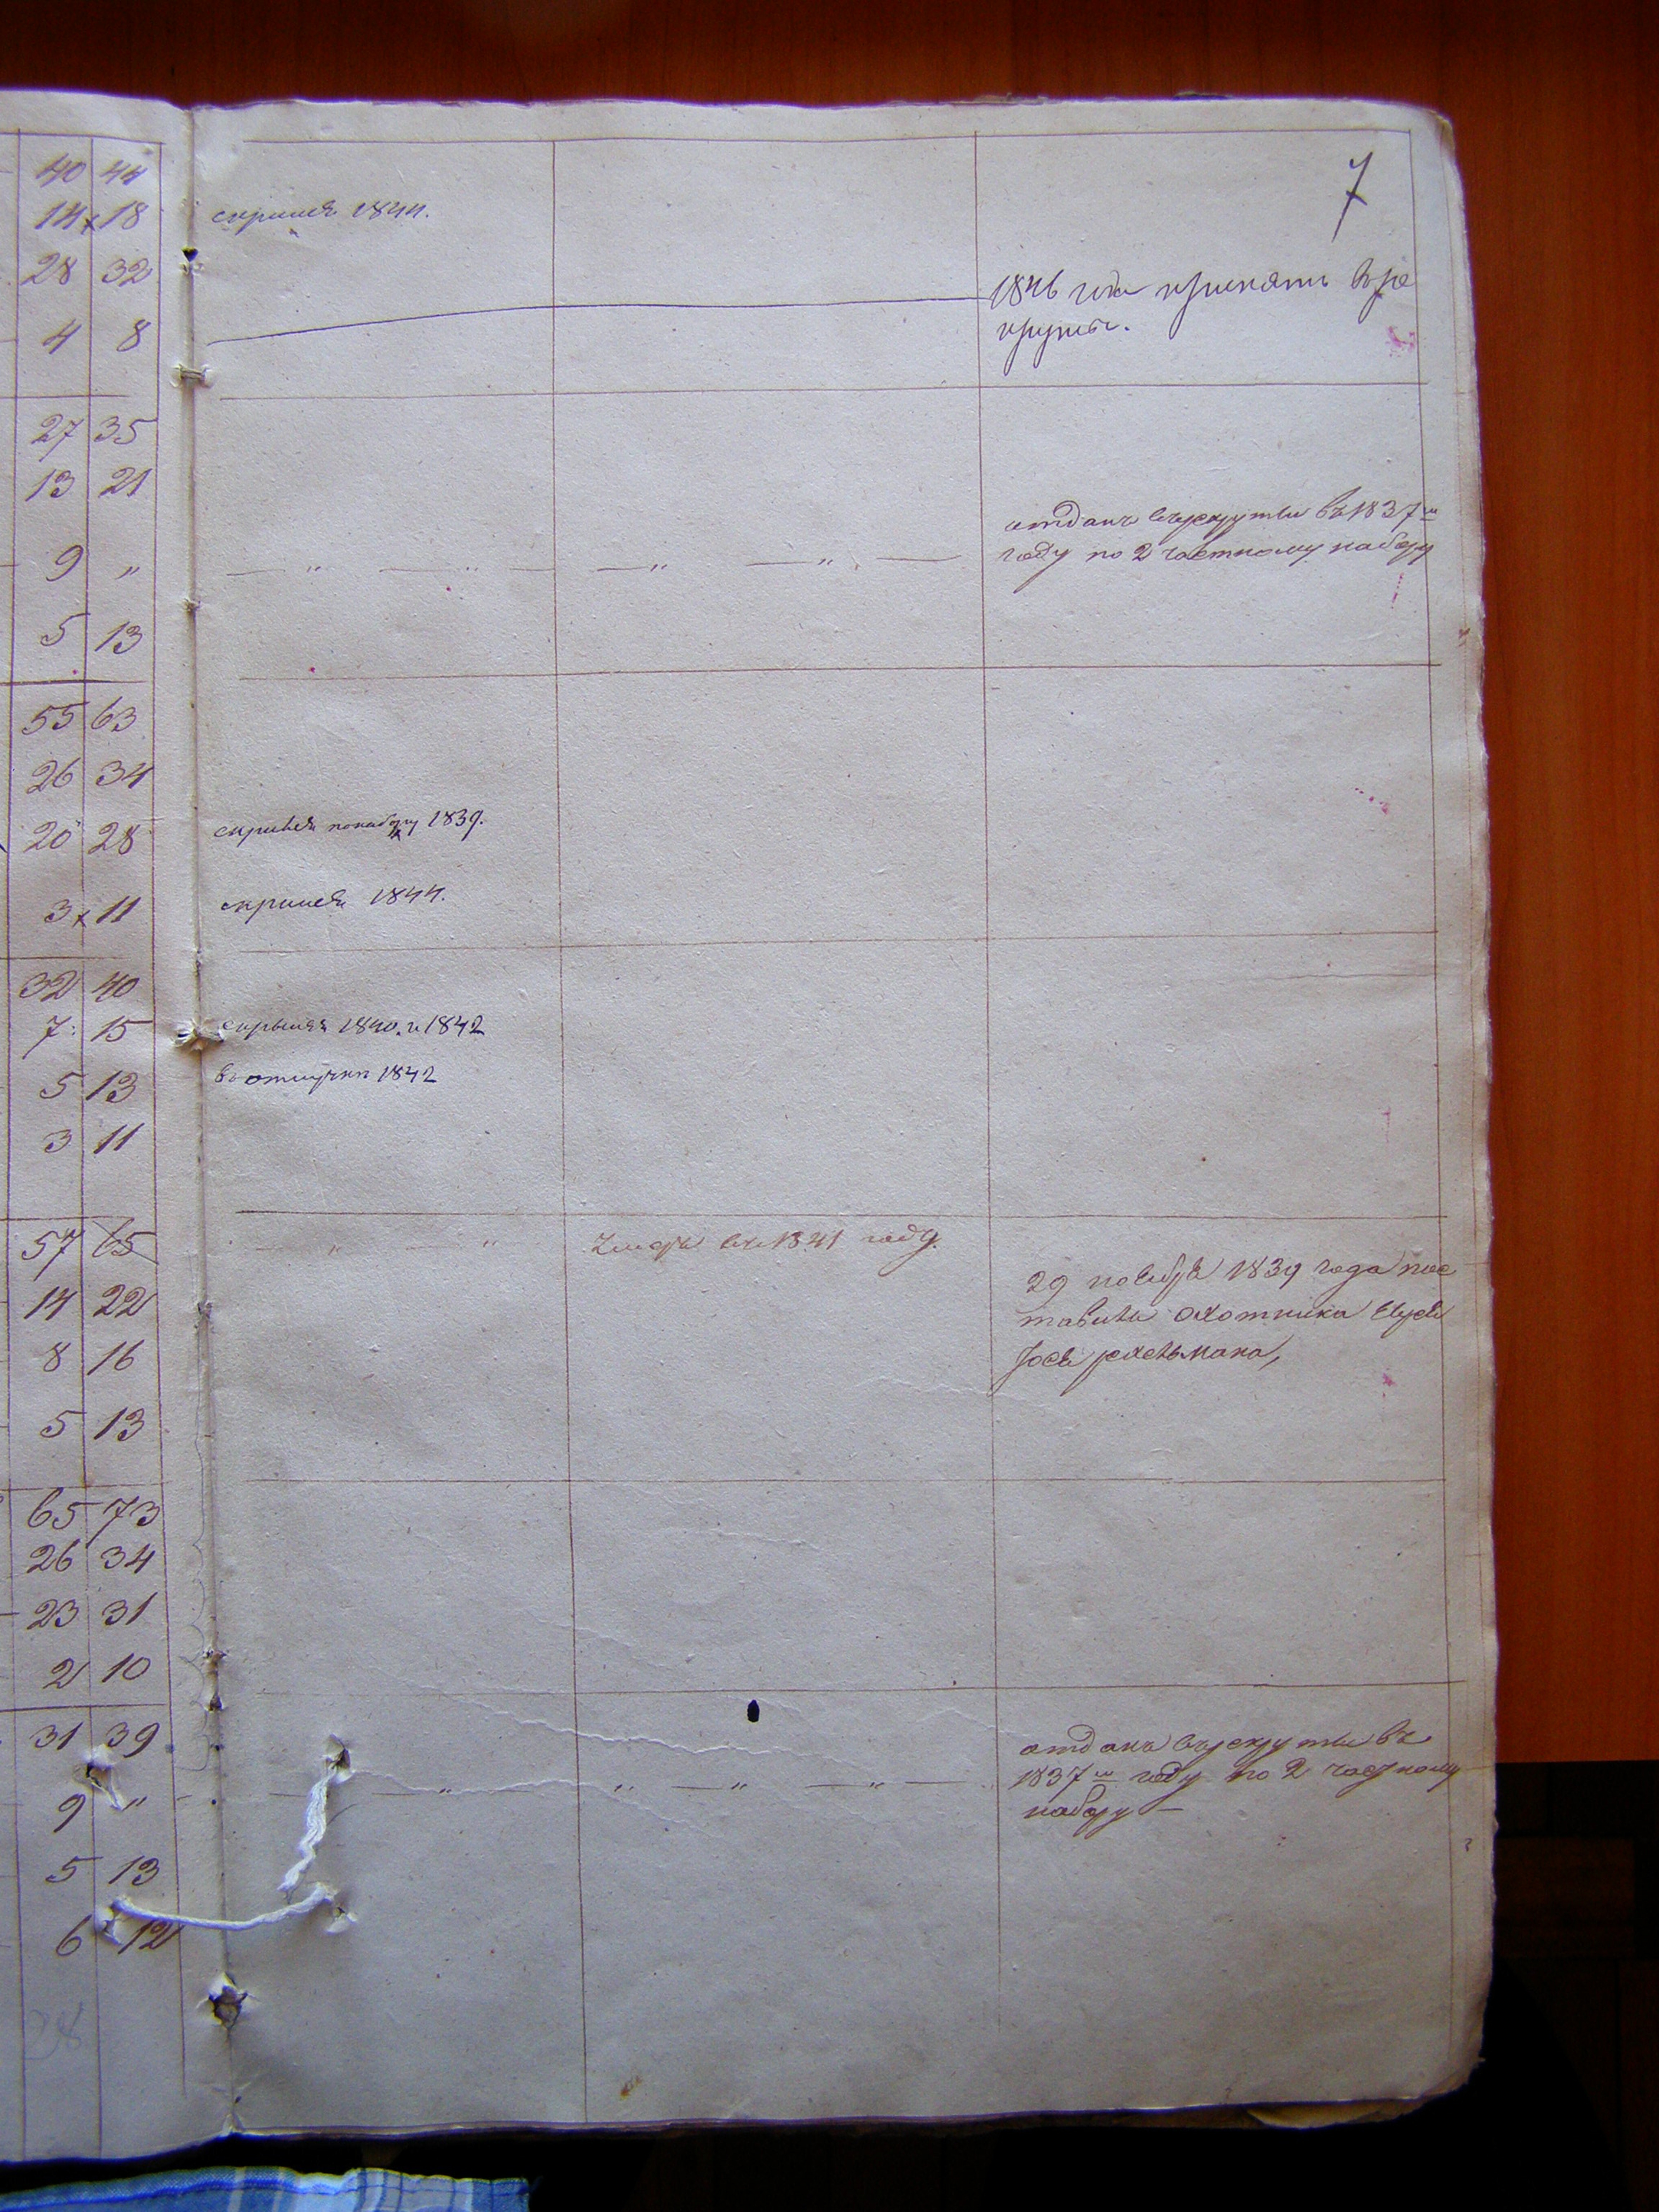 7
40 44
14 x 18 скрился 1844.
28 32
1846 года принятъ врѣ
круты.
4 8
27 35
13 21
отданъ въ рекруты въ 1837 м
году по 2 частному набору
9 „
5 13
55 63
26 34
20 28 скрился понабору 1839.
3 x 11 скрился 1844.
32 40
7 15 скрылся 1840. и 1842
5 13 въ отлучки 1842
3 11
57 65 „ „ Умеръ въ 1841 году.
29 ноября 1839 года пос
14 22
тавили охотника
8 16
5 13
65 73
26 34
23 31
2 10
31 39
отданъ въ рекруты въ
9 „ 1837 м году по 2 частному
набору —
5 13
6 12
28